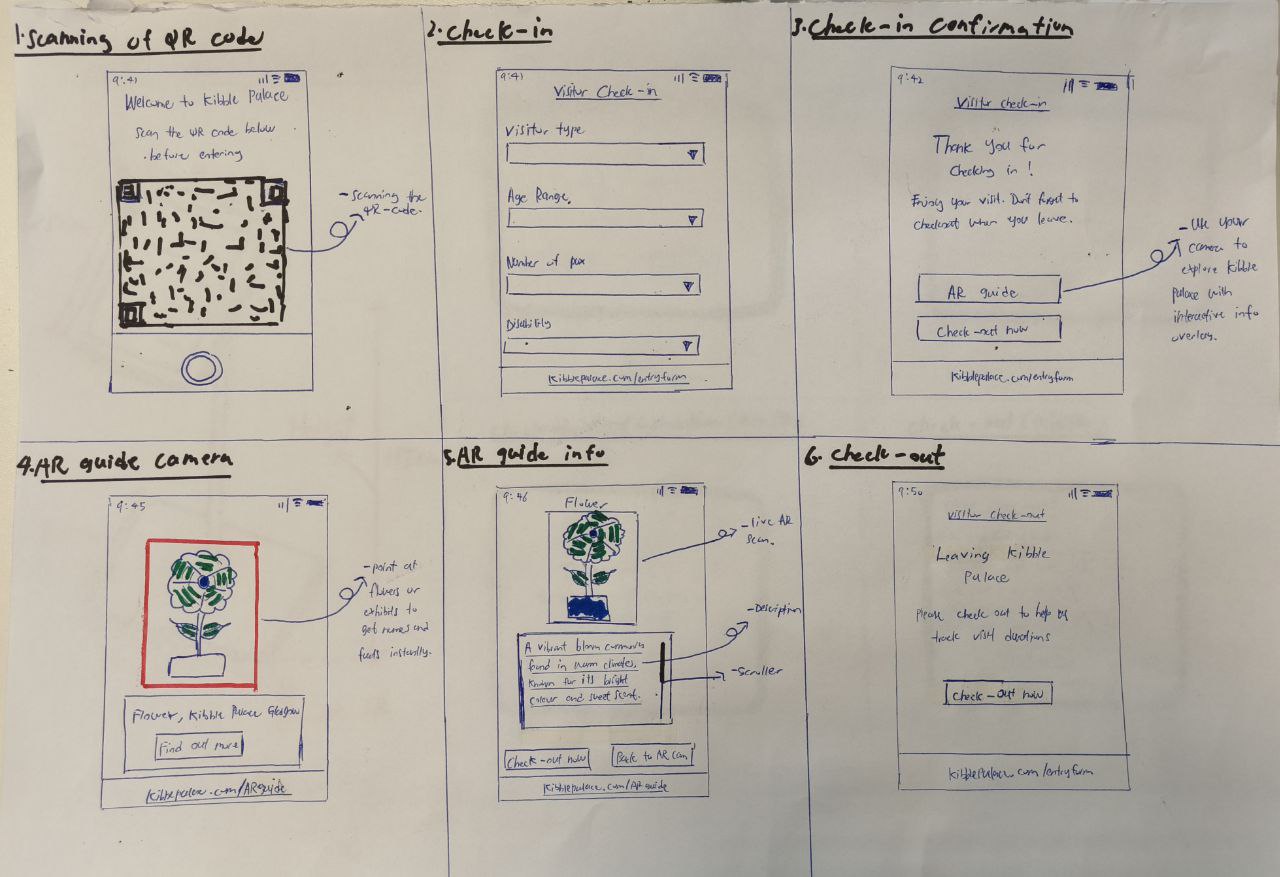 1. Scanning of QR code
9:41
Welcome to Kibble Palace
Scan the QR code below
before entering
- Scanning the
QR-code.
2. Check-in
9:41
Visitor Check-in
Visitor type
Age Range
Number of pax
Disability
Kibblepalace.com/entryform
3. Check-in confirmation
9:42
Visitor check-in
Thank you for
Checking in !
Enjoy your visit. Don't forget to
checkout when you leave.
AR guide
Check-out now
Kibblepalace.com/entryform
- Use your
camera to
explore Kibble
Palace with
interactive info
overlay.
4. AR guide camera
9:45
Flower, Kibble Palace Glasgow
Find out more
Kibblepalace.com/ARguide
- point at
flowers or
exhibits to
get names and
facts instantly.
5. AR guide info
9:46
Flower
- live AR
scan.
A vibrant bloom commonly
found in warm climates,
known for its bright
colour and sweet scent.
- Description
- Scroller
Check-out now
Back to AR cam
Kibblepalace.com/ARguide
6. Check-out
9:50
Visitor check-out
Leaving Kibble
Palace
Please check out to help us
track visit durations
Check-out now
Kibblepalace.com/entryform